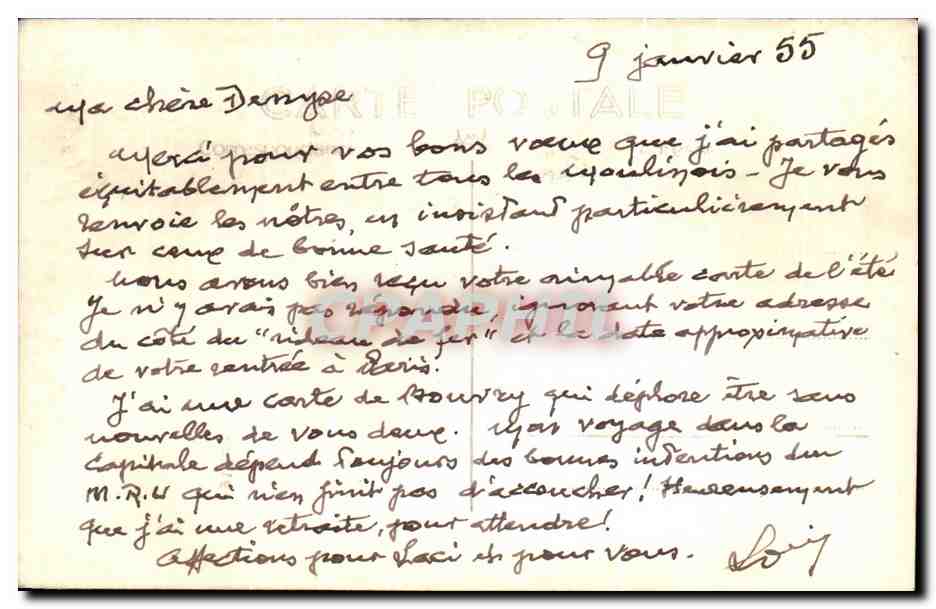 9 janvier 55
CARTE POSTALE
Ma chère Denyse
Merci pour vos bons vœux que j'ai partagés
équitablement entre tous les Moulinois - Je vous
renvoie les nôtres, en insistant particulièrement
sur ceux de bonne santé.
Nous avons bien reçu votre aimable carte de l'été
Je n'y avais pas répondu, ignorant votre adresse
du côté du "rideau de fer" et la date approximative
de votre rentrée à Paris.
J'ai une carte de Bouvry qui déplore être sans
nouvelles de vous deux. Mon voyage dans la
capitale dépend toujours des bonnes intentions du
M.R.U qui n'en finit pas d'accoucher! Heureusement
que j'ai une retraite, pour attendre!
Affections pour Laci et pour vous.
CPAPHIL